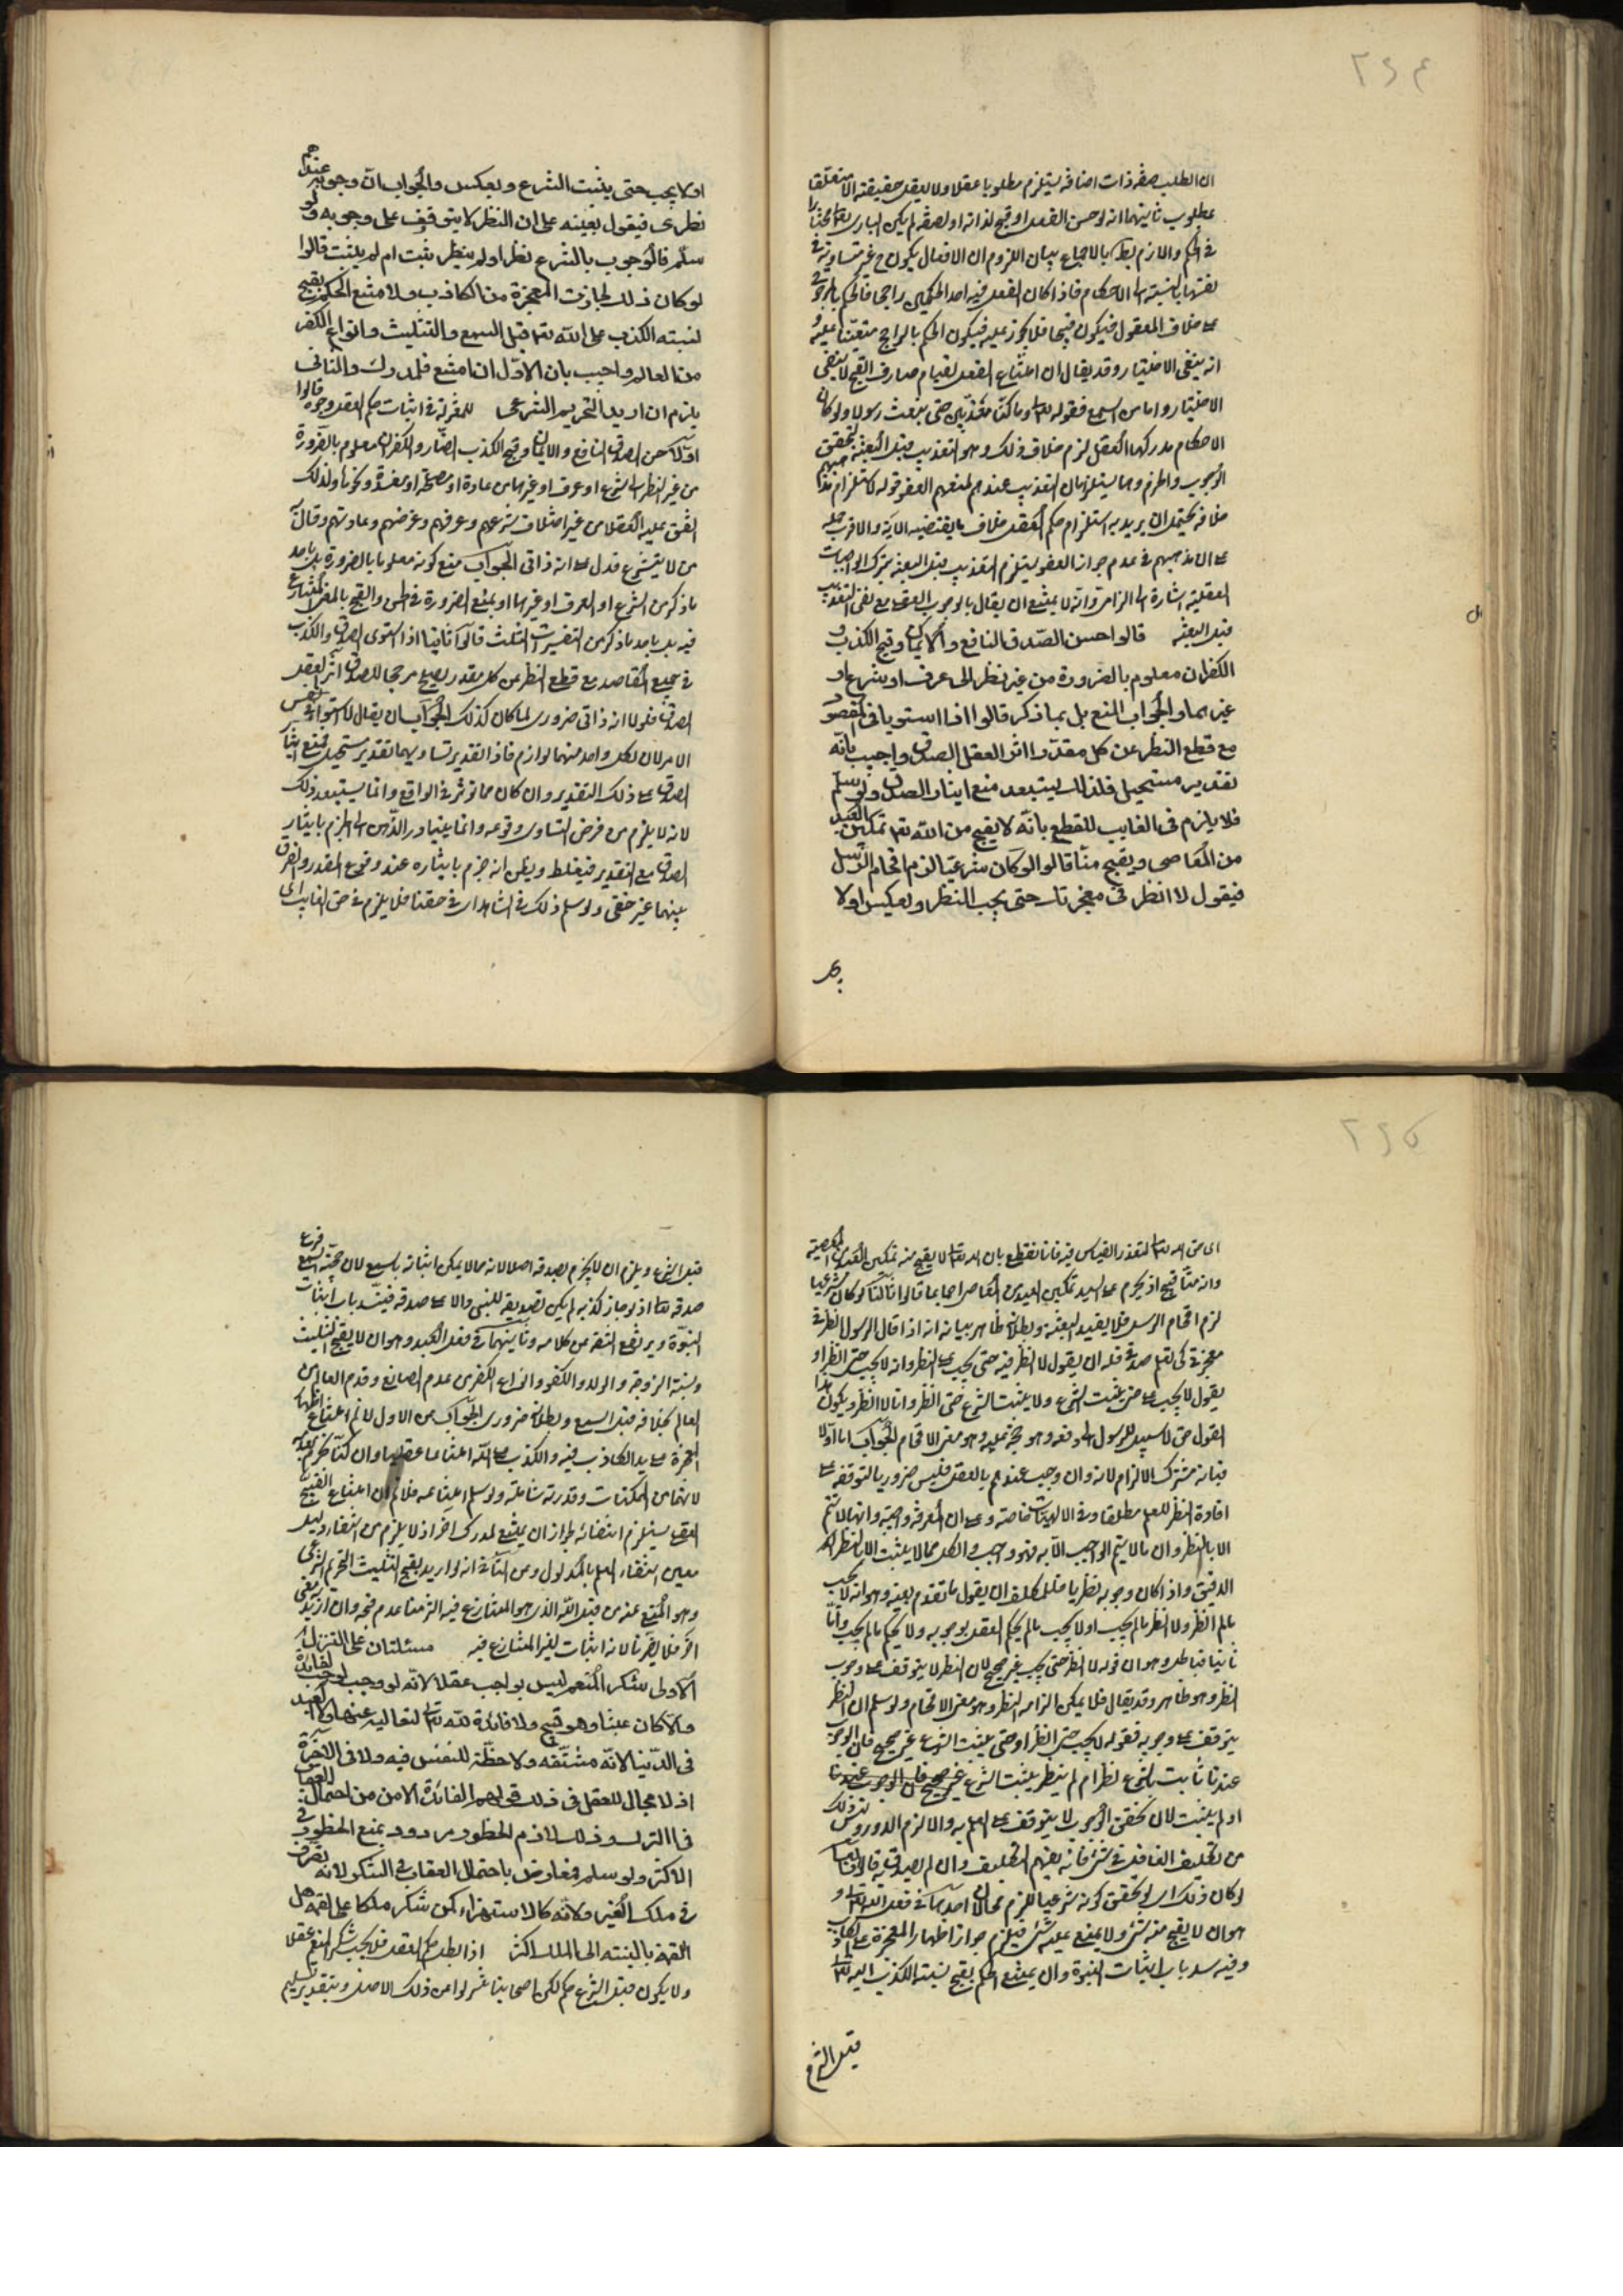 ٢٩٤
ان الطلب صفة ذات اضافة يستلزم مطلوبا عقلا ولا يعقل حقيقته الا متعلقا
بمطلوب ثانيهما انه لو حسن الفعل او قبح لذاته او لصفة لم يكن الباري تعالى مختارا
في الحكم واللازم بط بالاجماع بيان اللزوم ان الافعال يكون ح غير متساوية في
نفسها بالنسبة الى الاحكام فاذا كان الفعل فيه احد الحكمين راجحا فالحكم بالمرجوح
على خلاف المعقول فيكون قبيحا فلا يجوز عليه فيكون الحكم بالراجح متعينا عليه و
انه ينفي الاختيار وقد يقال ان امتناع الفعل لقيام صارف القبح لا ينفي
الاختيار واما من السمع فقوله تعالى وما كنا معذبين حتى نبعث رسولا ولو كان
الاحكام مدركها العقل لزم خلاف ذلك وهو التعذيب قبل البعثة لتحقق
الوجوب والحرم وهما يستلزمان التعذيب عندهم لمنعهم العفو قوله لاستلزام مذهبهم
خلافه يحتمل ان يريد به استلزام حكم العقل خلاف ما يقتضيه الاية والاقرب حمله
على ان مذهبهم في عدم جواز العفو يستلزم التعذيب قبل البعثة بترك الواجبات
العقلية اشارة الى الزامه وانه لا يمتنع ان يقال بالوجوب العقلي مع نفي التعذيب
قبل البعثة قالوا حسن الصدق النافع والايمان وقبح الكذب و
الكفران معلوم بالضرورة من غير نظر الى عرف او شرع او
غيرهما والجواب المنع بل بما ذكر قالوا اذا استويا في المقصود
مع قطع النظر عن كل مقدر اثر العقل الصدق واجيب بانه
تقدير مستحيل فلذلك يستبعد منع ايثار الصدق ولو سلم
فلا يلزم في الغايب للقطع بانه لا يقبح من الله تعالى تمكين العبد
من المعاصي ويقبح منا قالوا لو كان شرعيا لزم افحام الرسل
فيقول لا انظر في معجزتك حتى يجب النظر ويعكس او لا
او لا يجب حتى يثبت الشرع ويعكس والجواب ان وجوبه عندهم
نظري فيقول بعينه على ان النظر لا يتوقف على وجوبه ولو
سلم فالوجوب بالشرع نظر او لم ينظر ثبت ام لم يثبت قالوا
لو كان ذلك لجازت المعجزة من الكاذب ولامتنع الحكم بقبح
لنسبته الكذب على الله تعالى قبل السمع والتثليث وانواع الكفر
من العالم واجيب بان الاول ان امتنع فلمدرك والثاني
يلزم ان اريد التحريم الشرعي للمعتزلة في اثبات حكم العقل وجوه قالوا
اولا حسن الصدق النافع والايمان وقبح الكذب الضار والكفران معلوم بالضرورة
من غير النظر الى شرع او عرف او غيرهما من عادة او مصلحة او مفسدة ونحوها ولذلك
اتفق عليه العقلا من غير اختلاف شرعهم وعرفهم وغرضهم وعادتهم وقال به
من لا يتشرع فدل على انه ذاتي الجواب منع كونه معلوما بالضرورة بل باحد
ما ذكر من الشرع او العرف او غيرهما او بمنع الضرورة في الحسن والقبح بالمعنى المتنازع
فيه بل باحد ما ذكر من التفسيرات الثلث قالوا ثانيا اذا استوى الصدق والكذب
في جميع المقاصد مع قطع النظر عن كل مقدر يصلح مرجحا للصدق اثر العقل
الصدق فلولا انه ذاتي ضروري لما كان كذلك الجواب ان يقال لا استواء في نفس
الامر لان لكل واحد منهما لوازم فاذا التقدير تساويهما تقدير مستحيل فيمنع ايثار
الصدق على ذلك التقدير وان كان مما يؤثر في الواقع وانما يستبعد ذلك
لانه لا يلزم من فرض التساوي وقوعه وانما يتبادر الذهن الى الجزم بايثار
الصدق مع التقدير فيغلط ويظن انه جزم بايثاره عند وقوع المقدر والفرق
بينهما غير خفي ولو سلم ذلك في الشاهد اي في حقنا فلا يلزم في حق الغايب اي
٢٩٥
اي حق الله تعالى لتعذر القياس فيه فانا نقطع بان الله تعالى لا يقبح منه تمكين العبد من المعصية
وانه منا قبيح اذ يحرم على السيد تمكين العبد من المعاصي اجماعا قالوا ثالثا لو كان شرعيا
لزم افحام الرسل فلا يفيد البعثة وبطلانه ظاهر بيانه انه اذا قال الرسول انظر في
معجزتي كي تعلم صدقي فله ان يقول لا انظر فيه حتى يجب على النظر وانه لا يجب حتى انظر او
يقول لا يجب على حتى يثبت الشرع ولا يثبت الشرع حتى انظر وانا لا انظر ويكون هذا
القول حق لا سبيل للرسول الى دفعه وهو حجة عليه وهو معنى الافحام الجواب اما اولا
فبانه مشترك الالزام لانه وان وجب عندهم بالعقل فليس ضروريا لتوقفه على
افادة النظر للعلم مطلقا وفي الالهيات خاصة وعلى ان المعرفة واجبة وانها لا تتم
الا بالنظر وان ما لا يتم الواجب الا به فهو واجب والكل مما لا يثبت الا بالنظر
الدقيق واذا كان وجوبه نظريا فللمكلف ان يقول ما تقدم بعينه وهو انه لا يجب
ما لم انظر ولا انظر ما لم يجب او لا يجب ما لم يحكم العقل بوجوبه ولا يحكم ما لم يجب واما
ثانيا فبالحل وهو ان قوله لا انظر حتى يجب غير صحيح لان النظر لا يتوقف على وجوب
النظر وهو ظاهر وقد يقال فلا يمكن الزامه النظر وهو معنى الافحام ولو سلم ان النظر
يتوقف على وجوبه فقوله لا يجب حتى انظر او حتى يثبت الشرع غير صحيح فان الوجوب
عندنا ثابت بالشرع نظر ام لم ينظر يثبت الشرع غير صحيح فان الوجوب عندنا
او لم يثبت لان تحقق الوجوب لا يتوقف على العلم به والا لزم الدور وليس ذلك
من تكليف الغافل في شئ فانه يفهم التكليف وان لم يصدق به قالوا رابعا
لو كان ذلك اي لو تحقق كونه شرعيا للزم محالان احدهما في فعل الله تعالى و
هو ان لا يقبح منه شئ ولا يمتنع عليه شئ فيلزم جواز اظهار المعجزة على يد الكاذب
وفيه سد باب اثبات النبوة وان يمتنع الحكم بقبح نسبة الكذب اليه تعالى
قبل الشرع
قبل الشرع ويلزم ان لا يجزم بصدقه اصلا لانه مما لا يمكن اثباته بالسمع لان حجية السمع فرع
صدقه تعالى اذ لو جاز كذبه لم يكن تصديقه للنبي دالا على صدقه فينسد باب اثبات
النبوة ويرتفع الثقة عن كلامه وثانيهما في فعل العبد وهو ان لا يقبح التثليث
ونسبة الزوجة والولد والكفر وانواع الكفر من عدم الصانع وقدم العالم من
العالم بخلافه قبل السمع وبطلانه ضروري الجواب عن الاول لا نم امتناع اظهار
المعجزة على يد الكاذب فيه والكذب على الله امتناعا عقليا وان كنا نجزم بعدمه
لانهما من الممكنات وقدرته شاملة ولو سلم امتناعه فلا نم ان امتناع القبح
العقلي يستلزم انتفائه لجواز ان يمتنع لمدرك اخر اذ لا يلزم من انتفاء دليل
معين انتفاء العلم بالمدلول وعن الثاني انه لو اريد بقبح التثليث التحريم الشرعي
وهو المنع عنه من قبل الله الذي هو المتنازع فيه التزمنا عدم قبحه وان اريد معنى
اخر فلا يضرنا لانه اثبات لغير المتنازع فيه مسئلتان على التنزل
الاولى شكر المنعم ليس بواجب عقلا لانه لو وجب لوجب لفايدة
والا كان عبثا وهو قبيح ولا فائدة لله تعالى لتعاليه عنها ولا للعبد
في الدنيا لانه مشقة ولا حظ للنفس فيه ولا في الاخرة
اذ لا مجال للعقل في ذلك قولهم الفائدة الامن من احتمال العقاب
في الترك وذلك لازم الخطور مردود بمنع الخطور في
الاكثر ولو سلم فمعارض باحتمال العقاب في الشكر لانه تصرف
في ملك الغير ولانه كالاستهزاء كمن شكر ملكا على لقمة بل
اللقمة بالنسبة الى الملك اكثر اذا بطل حكم العقل فلا يجب شكر المنعم عقلا
ولا يكون قبل الشرع حكم لكن اصحابنا تنزلوا عن ذلك الاصل وبتقدير تسليم